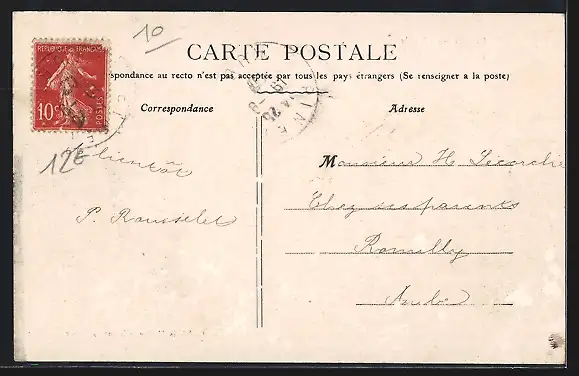 10
CARTE POSTALE
spondance au recto n'est pas acceptée par tous les pays étrangers (Se renseigner a la poste)
REPUBLIQUE FRANÇAISE
10c
POSTES
Correspondance
Adresse
12€
bientôt
P. Rousselet
Monsieur H.
Chez ses parents
Romilly
Aube